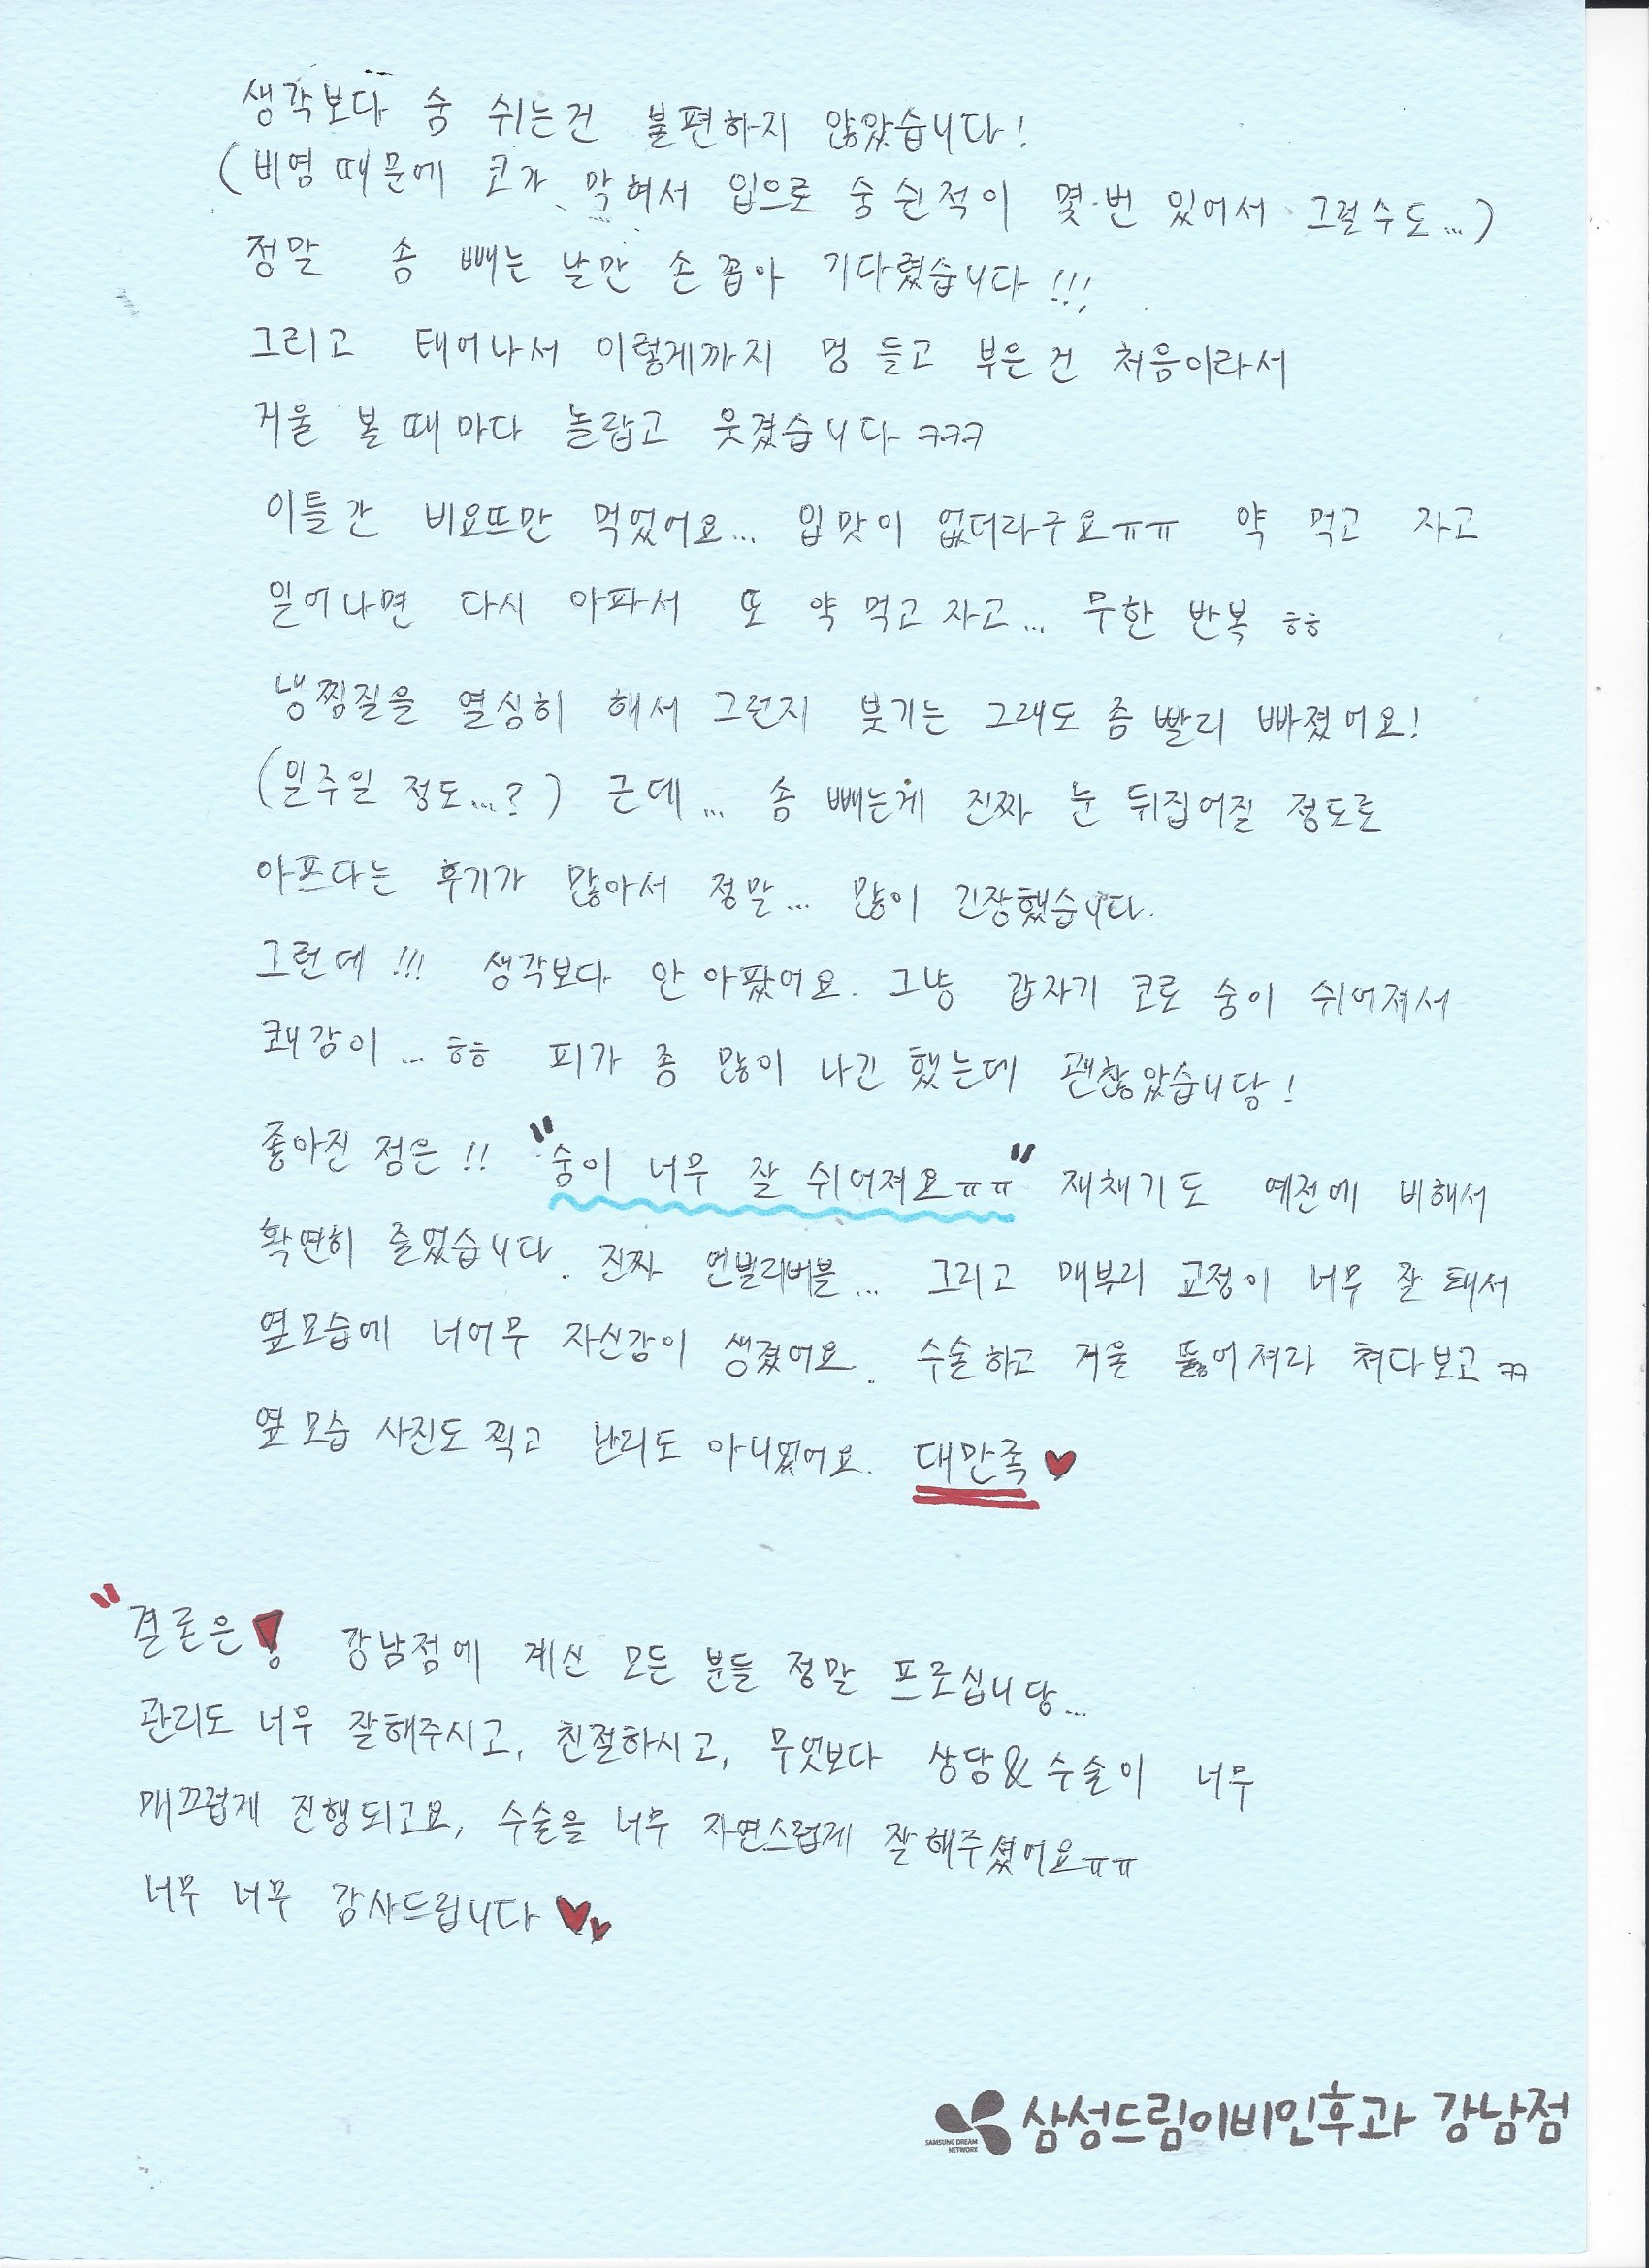 생각보다 숨 쉬는건 불편하지 않았습니다!
(비염 때문에 코가 막혀서 입으로 숨쉰적이 몇번 있어서 그럴수도...)
정말 솜 빼는 날만 손꼽아 기다렸습니다!!!
그리고 태어나서 이렇게까지 멍 들고 부은건 처음이라서
거울 볼때마다 놀랍고 웃겼습니다 ㅋㅋㅋ
이틀간 비요뜨만 먹었어요... 입맛이 없더라구요ㅠㅠ 약 먹고 자고
일어나면 다시 아파서 또 약 먹고 자고... 무한 반복 ㅎㅎ
냉찜질을 열심히 해서 그런지 붓기는 그래도 좀 빨리 빠졌어요!
(일주일 정도...?) 근데... 솜 빼는게 진짜 눈 뒤집어질 정도로
아프다는 후기가 많아서 정말... 많이 긴장했습니다.
그런데!!! 생각보다 안 아팠어요. 그냥 갑자기 코로 숨이 쉬어져서
쾌감이... ㅎㅎ 피가 좀 많이 나긴 했는데 괜찮았습니당!
좋아진 점은!! "숨이 너무 잘 쉬어져요ㅠㅠ" 재채기도 예전에 비해서
확연히 줄었습니다. 진짜 언빌리버블... 그리고 매부리 교정이 너무 잘 돼서
옆모습에 너어무 자신감이 생겼어요. 수술하고 거울 뚫어져라 쳐다보고 ㅋㅋ
옆모습 사진도 찍고 난리도 아니었어요. 대만족♥
"결론은! 강남점에 계신 모든 분들 정말 프로십니당...
관리도 너무 잘해주시고, 친절하시고, 무엇보다 상담&수술이 너무
매끄럽게 진행되고요, 수술을 너무 자연스럽게 잘해주셨어요ㅠㅠ
너무 너무 감사드립니다♥♥
삼성드림이비인후과 강남점
SAMSUNG DREAM
NETWORK